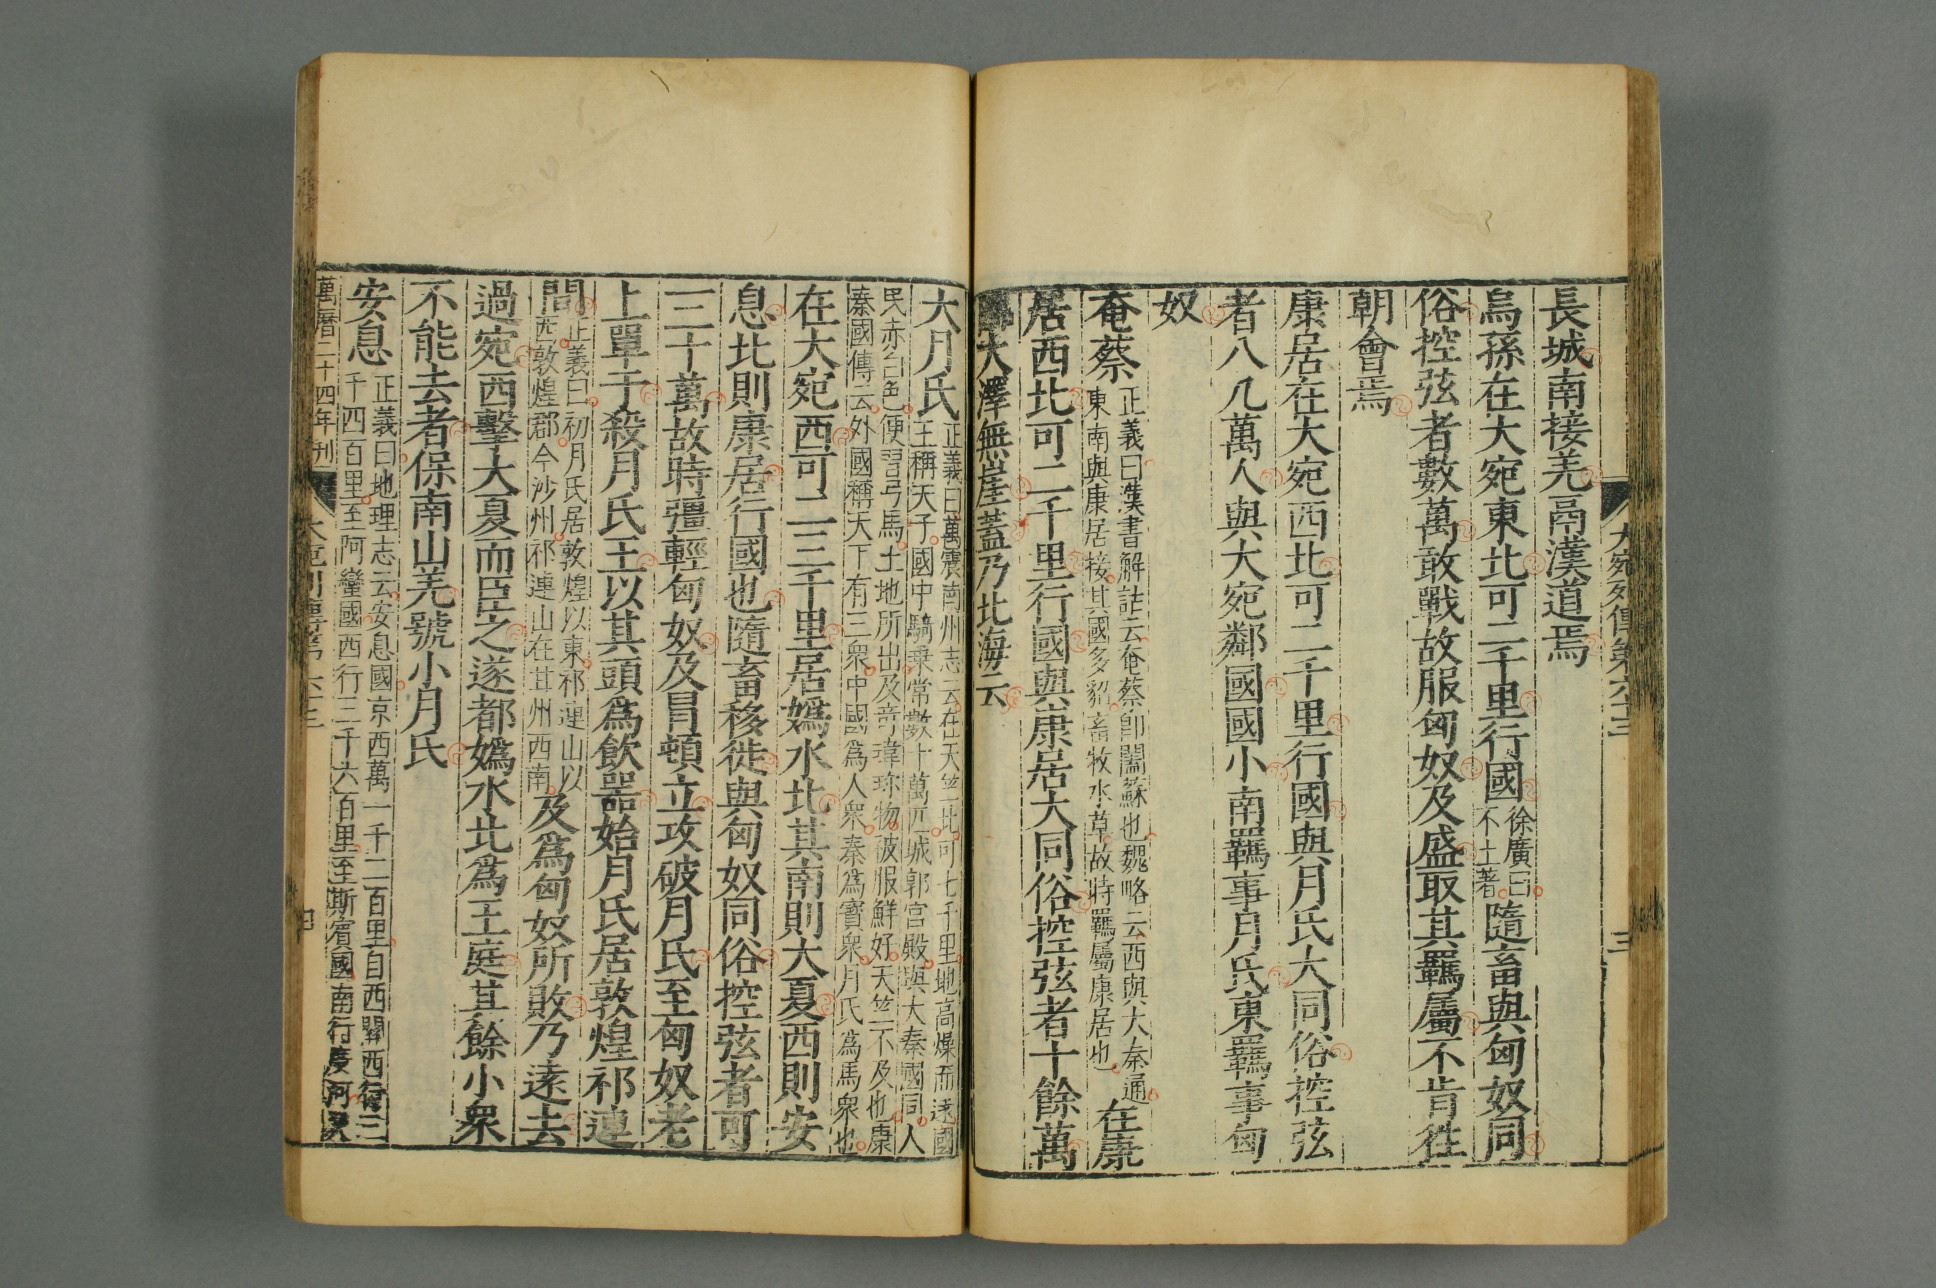 大宛列傳第六十三
三
長城南接羌鬲漢道焉
烏孫在大宛東北可二千里行國
徐廣曰
不土著
隨畜與匈奴同
俗控弦者數萬敢戰故服匈奴及盛取其羈屬不肯往
朝會焉
康居在大宛西北可二千里行國與月氏大同俗控弦
者八九萬人與大宛鄰國國小南羈事月氏東羈事匈
奴
奄蔡
正義曰漢書解詁云奄蔡即闔蘇也魏略云西與大秦通
東南與康居接其國多貂畜牧水草故時羈屬康居也
在康
居西北可二千里行國與康居大同俗控弦者十餘萬
臨大澤無崖蓋乃北海云
大月氏
正義曰萬震南州志云在天竺北可七千里地高燥而遠國
王稱天子國中騎乗常數十萬匹城郭宮殿與大秦國同人
民赤白色便習弓馬土地所出及竒瑋珍物被服鮮好天竺不及也康
秦國傳云外國稱天下有三衆中國爲人衆秦爲寶衆月氏爲馬衆也
在大宛西可二三千里居媯水北其南則大夏西則安
息北則康居行國也隨畜移徙與匈奴同俗控弦者可
一二十萬故時彊輕匈奴及冒頓立攻破月氏至匈奴老
上單于殺月氏王以其頭爲飲器始月氏居敦煌祁連
間
正義曰初月氏居敦煌以東祁連山以
西敦煌郡今沙州祁連山在甘州西南
及爲匈奴所敗乃遠去
過宛西擊大夏而臣之遂都媯水北爲王庭其餘小衆
不能去者保南山羌號小月氏
安息
正義曰地理志云安息國京西萬一千二百里自西關西行三
千四百里至阿蠻國西行三千六百里至斯賓國南行度河又
萬曆二十四年刊
大宛列傳第六十三
四